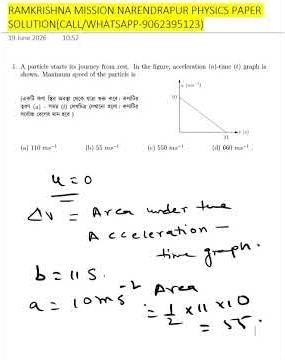 RAMKRISHNA MISSION NARENDRAPUR PHYSICS PAPER
SOLUTION(CALL/WHATSAPP-9062395123)
19 June 2026 10:52
1. A particle starts its journey from rest. In the figure, acceleration (a)-time (t) graph is
shown. Maximum speed of the particle is
a (ms⁻²)
10
(একটি কণা স্থির অবস্থা থেকে যাত্রা শুরু করে। কণাটির
ত্বরণ (a) - সময় (t) লেখচিত্র দেখানো হলো। কণাটির
সর্বোচ্চ বেগের মান হবে)
11
t (s)
(a) 110 ms⁻¹ (b) 55 ms⁻¹ (c) 550 ms⁻¹ (d) 660 ms⁻¹
u = 0
Δv = Area under the
Acceleration –
time graph.
b = 11 S.
a = 10 ms⁻² Area
= 1/2 × 11 × 10
= 55.